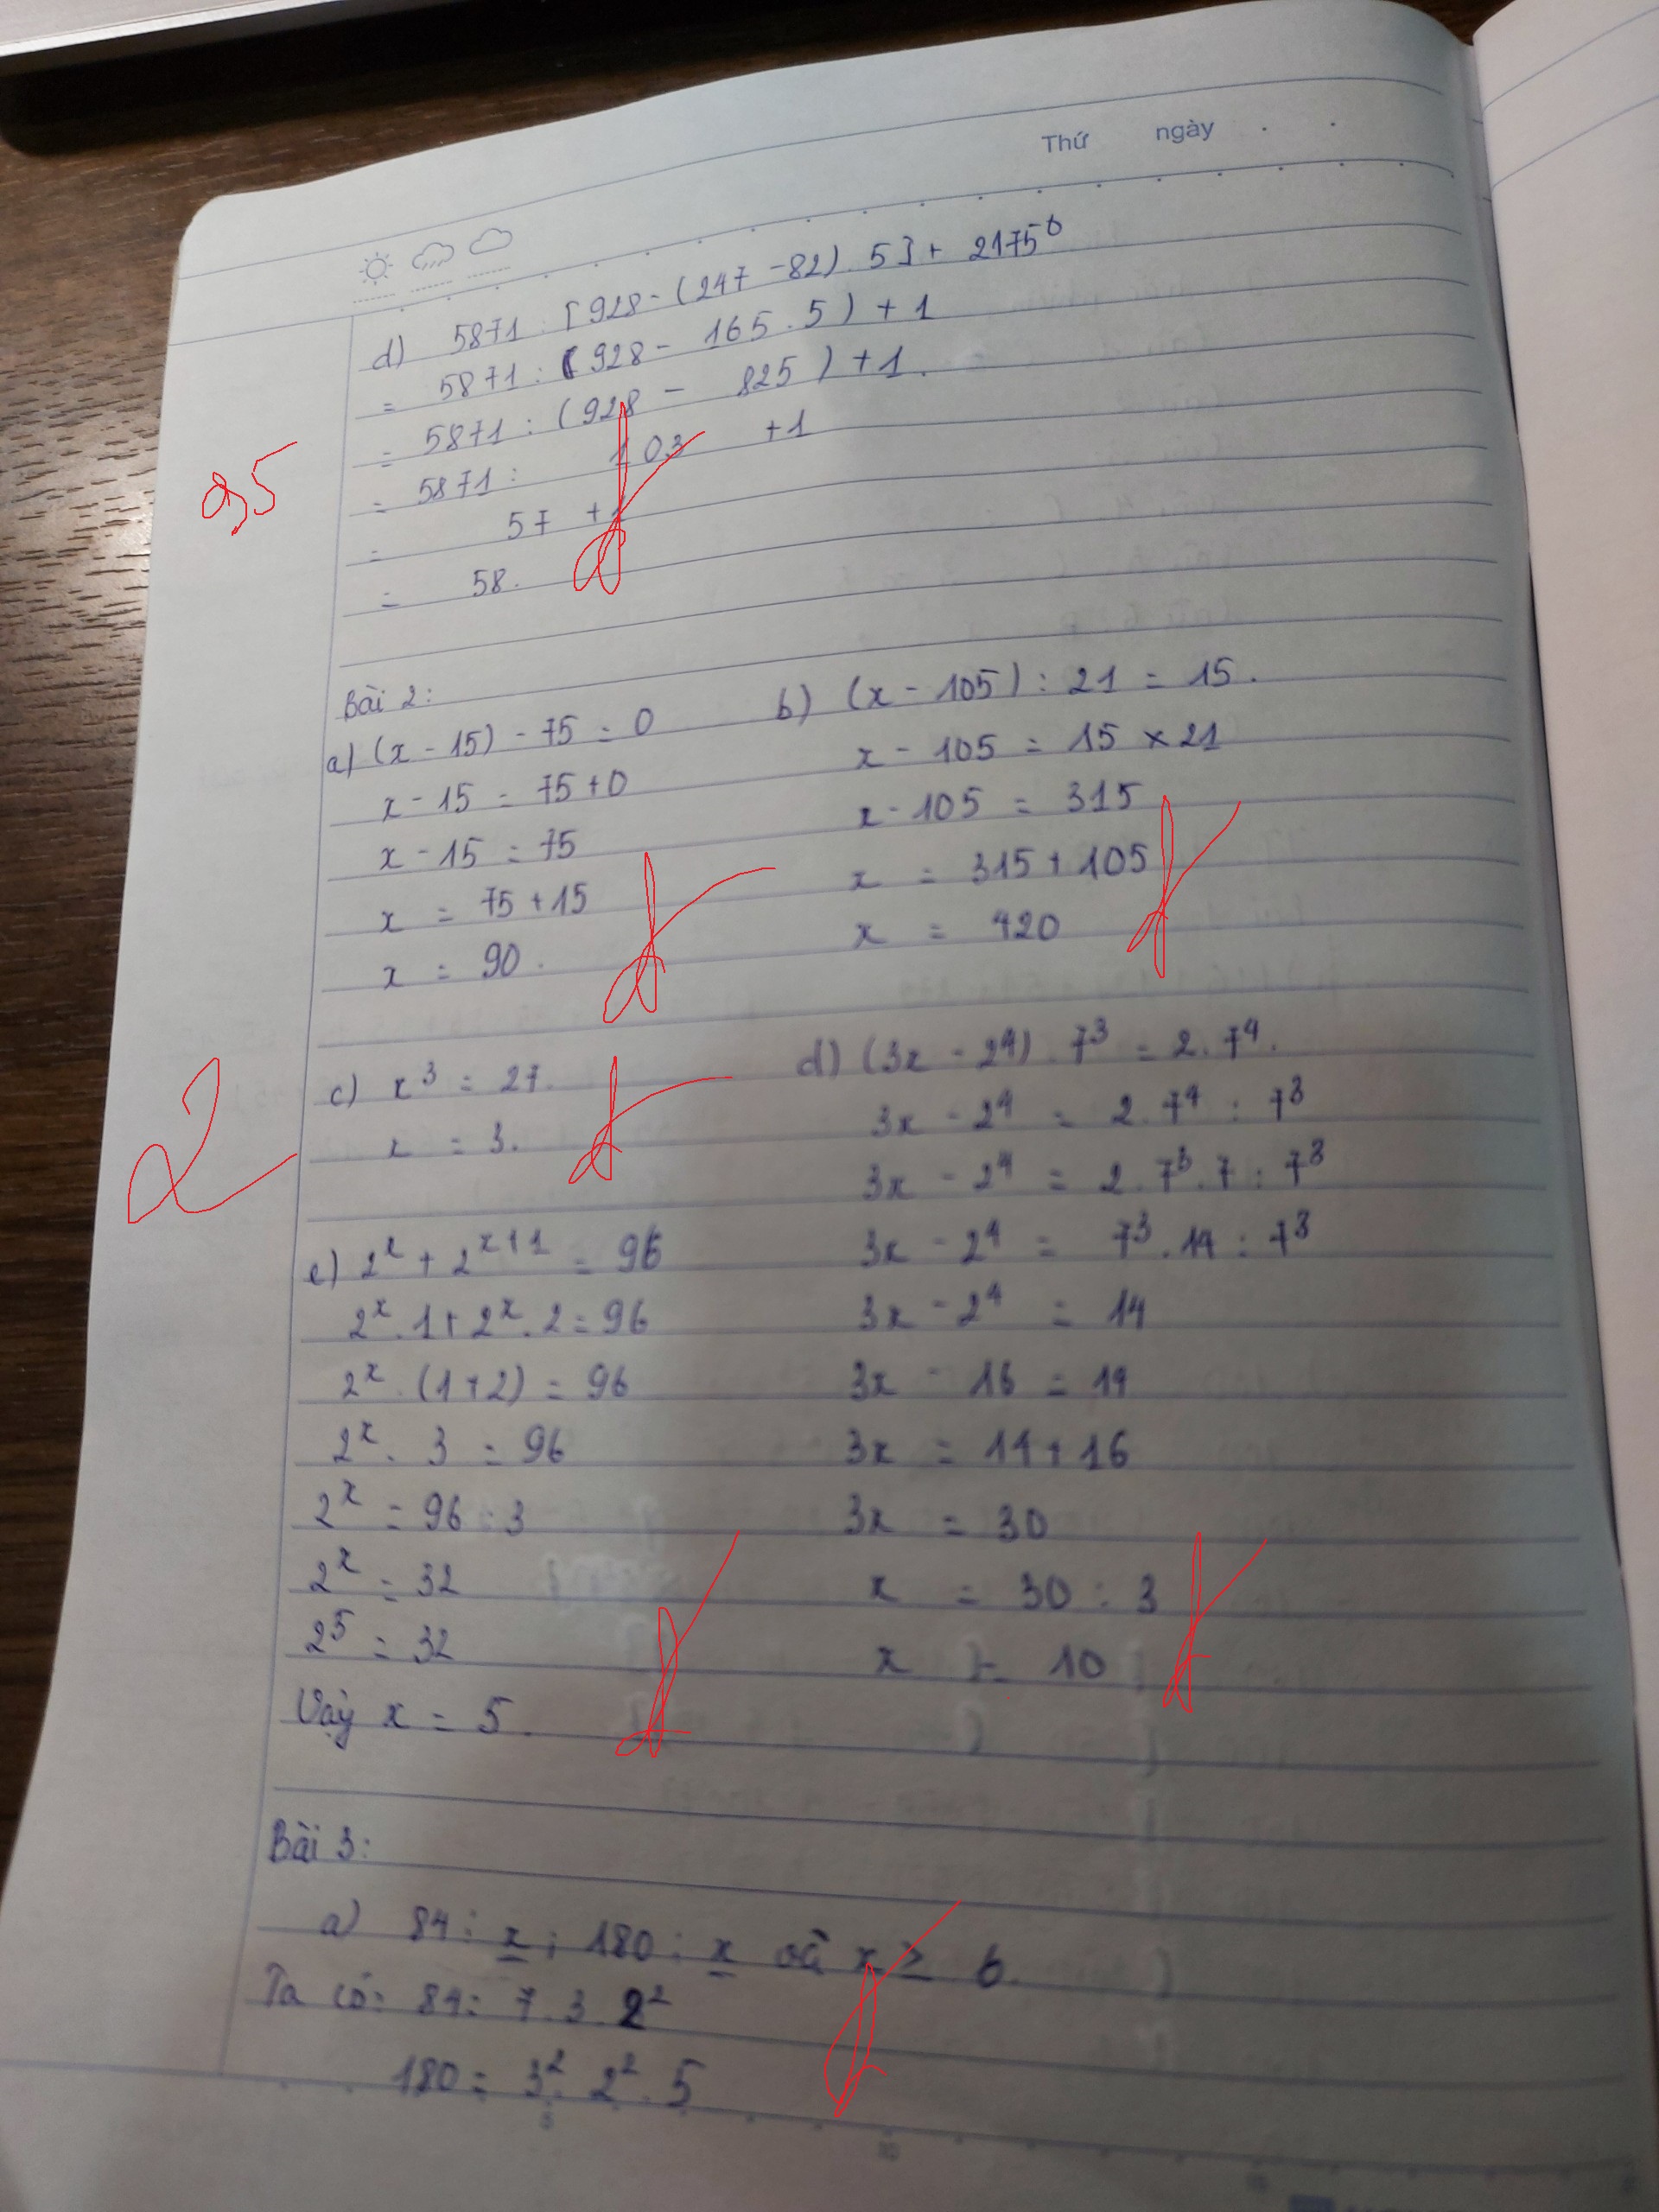 Thứ ngày
d) 5871 : [928 - (247 - 82) . 5] + 2175⁰
= 5871 : (928 - 165 . 5) + 1
= 5871 : (928 - 825) + 1.
= 5871 : 103 + 1
= 57 + 1
= 58.
Bài 2:
a) (x - 15) - 75 = 0
x - 15 = 75 + 0
x - 15 = 75
x = 75 + 15
x = 90.
b) (x - 105) : 21 = 15.
x - 105 = 15 × 21
x - 105 = 315
x = 315 + 105
x = 420
c) x³ = 27.
x = 3.
d) (3x - 2⁴) . 7³ = 2. 7⁴.
3x - 2⁴ = 2. 7⁴ : 7³
3x - 2⁴ = 2. 7³. 7 : 7³
3x - 2⁴ = 7³. 14 : 7³
3x - 2⁴ = 14
3x - 16 = 14
3x = 14 + 16
3x = 30
x = 30 : 3
x = 10
e) 2ˣ + 2ˣ⁺¹ = 96
2ˣ. 1 + 2ˣ. 2 = 96
2ˣ. (1 + 2) = 96
2ˣ. 3 = 96
2ˣ = 96 : 3
2ˣ = 32
2⁵ = 32
Vậy x = 5.
2
Bài 3:
a) 84 ⋮ x ; 180 ⋮ x và x ≥ 6.
Ta có: 84 = 7. 3. 2²
180 = 3². 2². 5